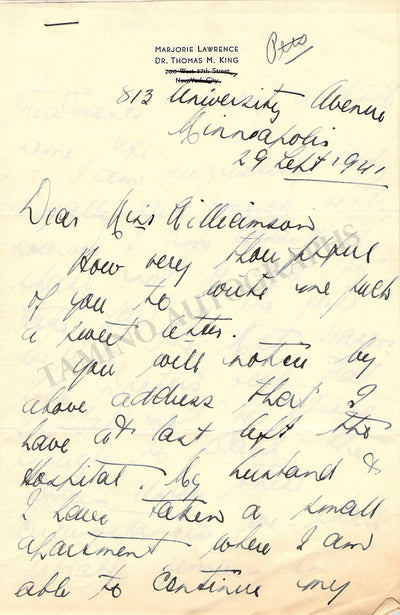 MARJORIE LAWRENCE
DR. THOMAS M. KING
200 West 57th Street,
New York City.
813 University Avenue
Minneapolis
29 Sept 1941
Dear Miss Williamson
How very thoughtful
of you to write me such
a sweet letter.
You will notice by
above address that I
have at last left the
Hospital. My husband &
I have taken a small
apartment where I am
able to continue my
TAMINO AUTOGRAPHS